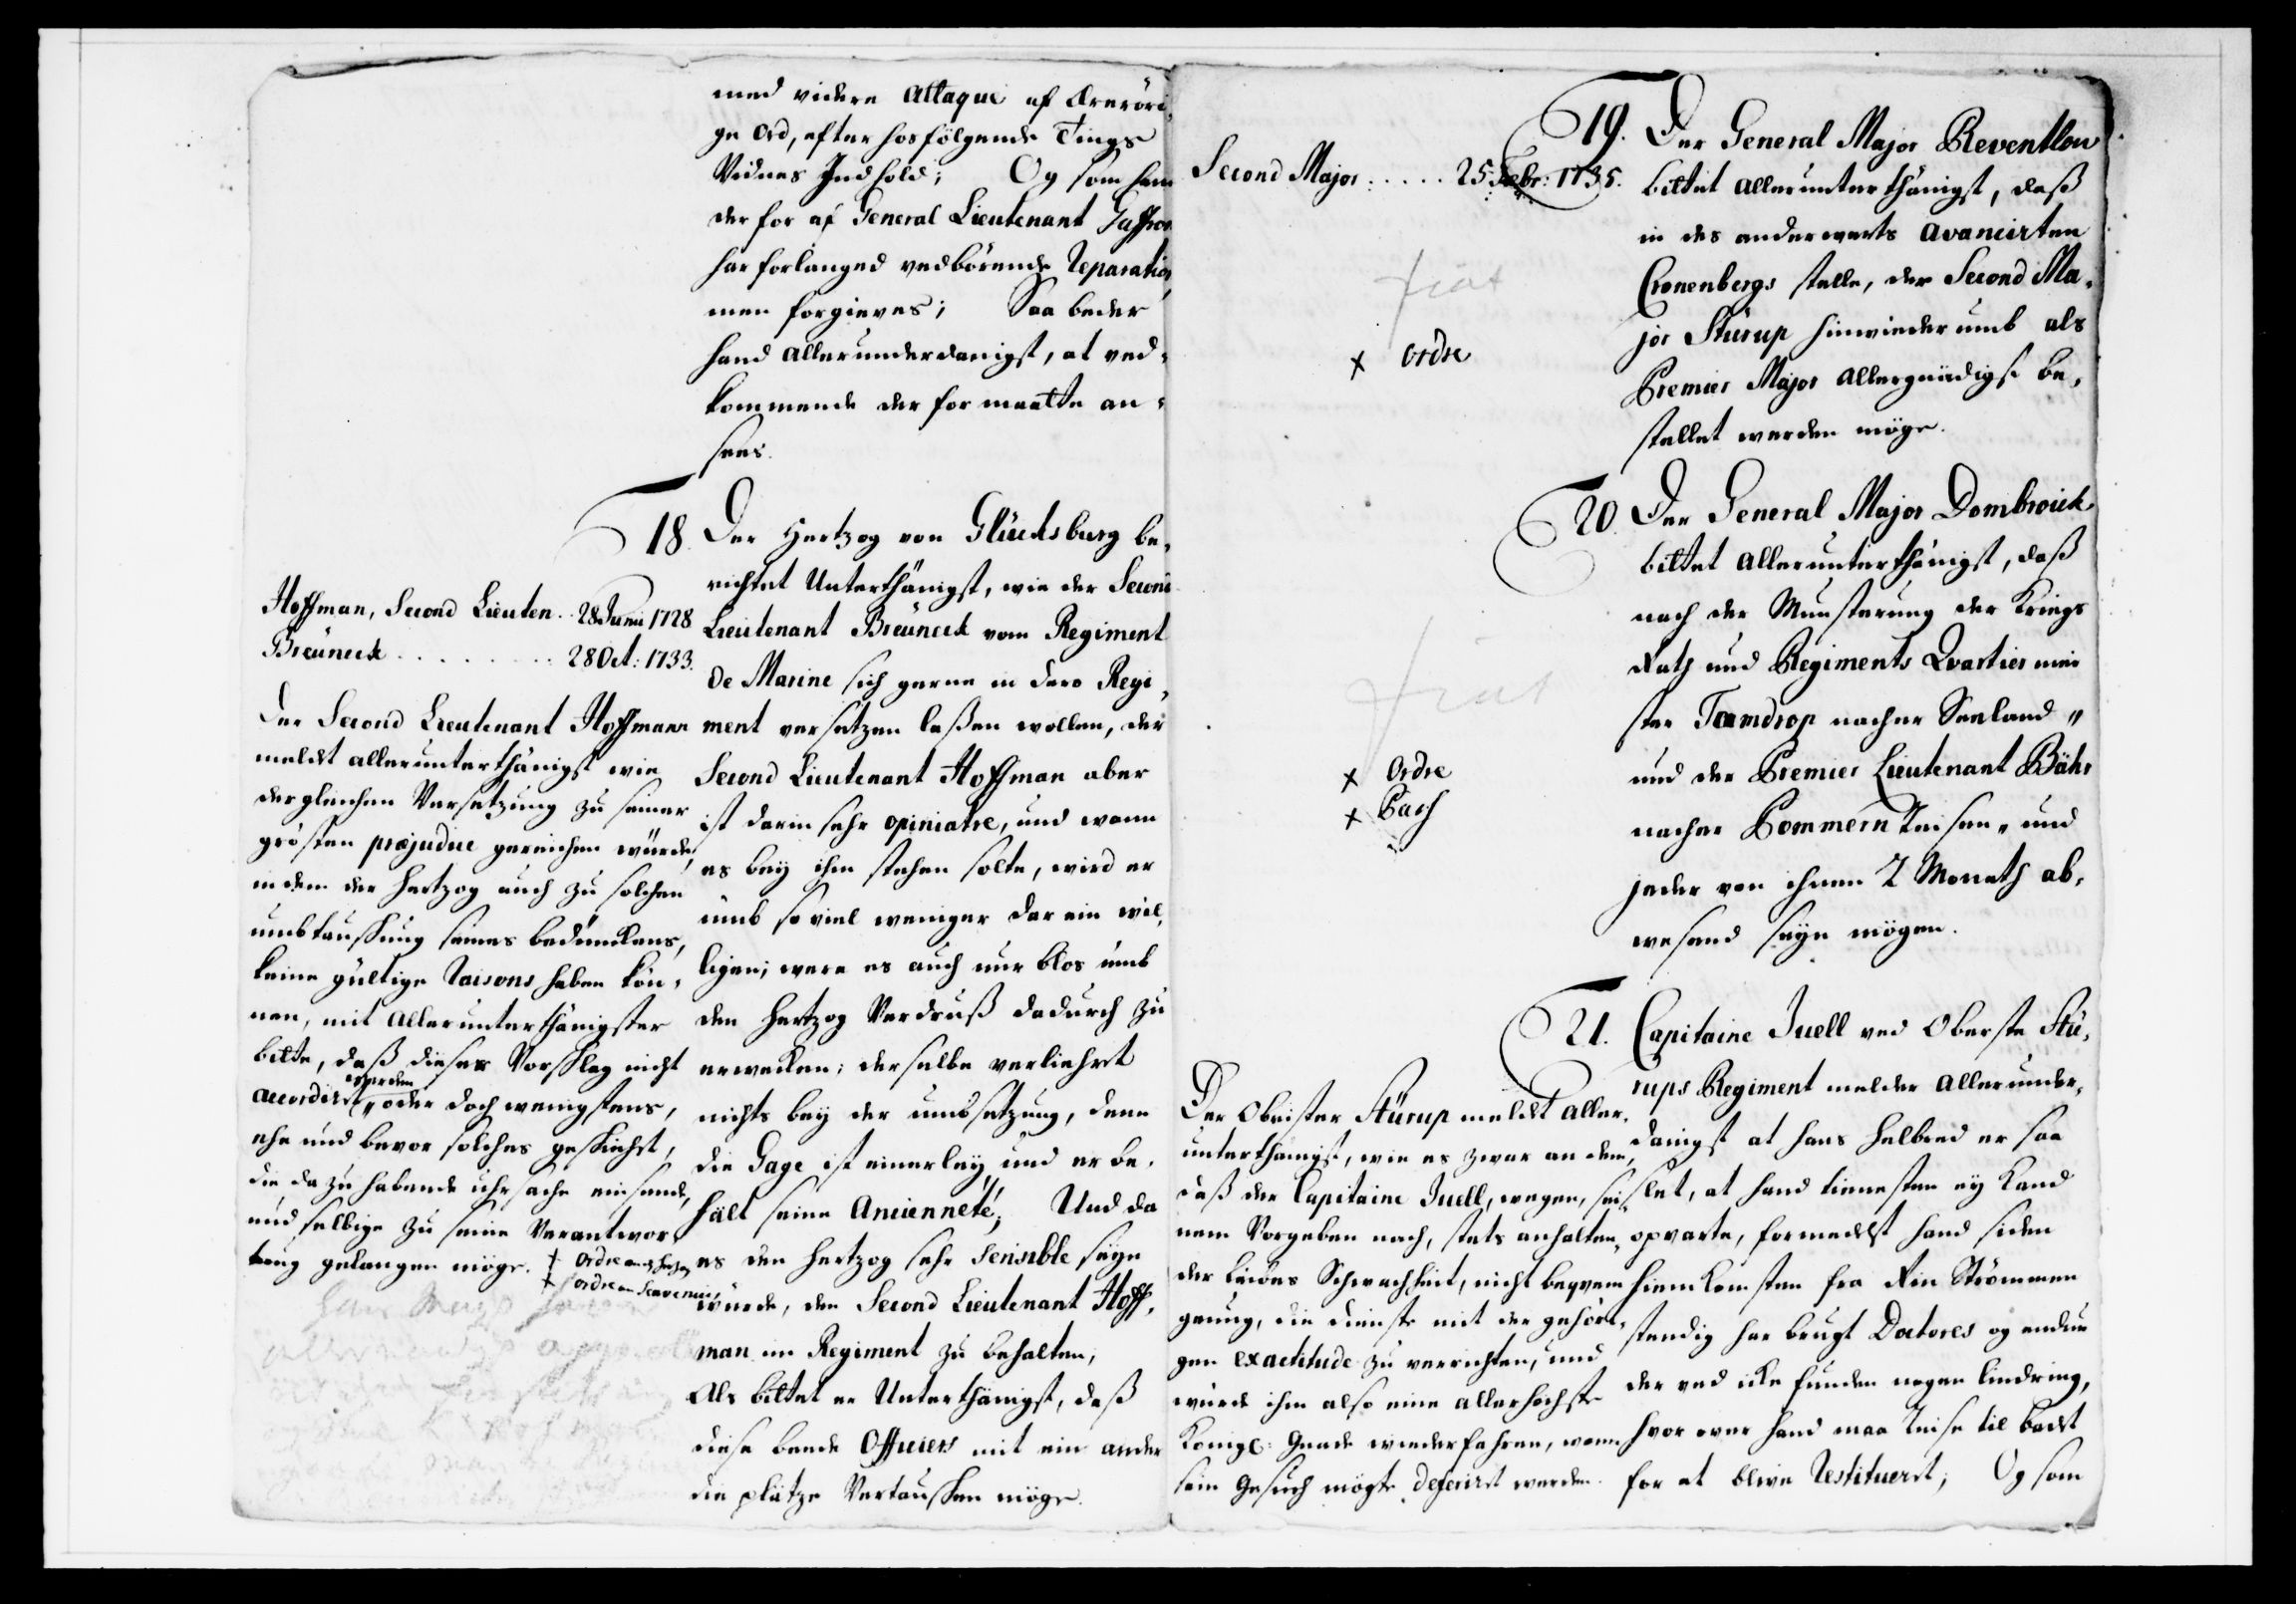 med videre Attaque af Æreröri¬
ge Ord, efter hosfölgende Tings
Vidnes Indhold; Og som hand
der for af General Lieutenant
har forlanged vedbörende Reparation
men forgieves; Saa beder
hand allerunderdanigst, at ved¬
kommende der for maatte an¬
sees.
18. Der Hertzog von Glücksburg be¬
richtet Unterthänigst, wie der Second
Lieutenant Breuneck vom Regiment
de Marine sich gerne in dero Regi¬
ment versetzen laßen wollen, der
Second Lieutenant Hoffman aber
ist darin sehr opiniatre, und wann
es bey ihm stehen solte, wird er
umb so viel weniger dar ein wil¬
ligen; were es auch nur blos umb
den Hertzog Verdruß dadurch zu
erwecken; derselbe verliehrt
nichts bey der umbsetzung, denn
die Gage ist einerley, und er be¬
hält seine Ancienneté; Und da
es den Hertzog sehr sensible seyn
würde, den Second Lieutenant Hoff¬
man im Regiment zu behalten,
Als bittet er Unterthänigst, daß
diese beede Officiers mit ein ander
die plätze Vertauschen möge.
Hoffman, Second Lieuten. 28 Junii 1728
Breuneck . . . . . . . . 28 Oct: 1733.
Der Second Lieutenant Hoffmann
meldet allerunterthänigst wie
dergleichen Versetzung zu seiner
grösten præjudice gereichen würde,
indem der Hertzog auch zu solchen
umbtauschung seines bedünckens,
keine gültige Raisons haben kön¬
nen, mit Allerunterthänigster
bitte, daß dieser Vorschlag nicht
accordirt werden, oder doch wenigstens,
ehe und bevor solches geschiehet,
die dazu habende uhrsache einsende,
und selbige zu seine Verantwor
tung gelangen möge.
x Ordre
x Ordre
19. Der General Major Reventlow
bittet allerunterthänigst, daß
in des anderwerts avancirten
Cronenbergs stelle, der Second Ma¬
jor Stürup hinwiederumb als
Premier Major allergnädigst be¬
stellet werden möge.
Second Major: . . . . . 25 Febr: 1735.
fiat
x Ordre
20. Der General Major Dombroick
bittet allerunterthänigst, daß
nach der Munsterung der Kriegs
Rath und Regiments Qvartier mei
ster Tamdrop nacher Seeland,,
und der Premier Lieutenant Bähr
nacher Pommern Reisen, und
jeder von ihnen 2 Monath ab¬
wesend seyn mögen.
fiat
x Ordre
x Paß
21. Capitaine Juell ved Oberste Stü¬
rups Regiment melder allerunder¬
danigst at hans helbred er saa
slet, at hand tienesten ey kand
opvarte, formedelst hand siden
hiemkomsten fra Rin Strömmen
stendig har brugt Doctores og endnu
der ved icke funden nogen lindring,
hvor over hand maa Reise til badet
for at blive Restitueret; Og som
Der Obrister Stürup meldet aller¬
unterthänigst, wie es zwar an dem,
daß der Capitaine Juell, wegen, sei¬
nem Vorgeben nach, stets anhalten¬
der Leibes Schwachheit, nicht beqvem
genung, die dienste mit der gehöri¬
gen exactitude zu verrichten, und
würde ihm also eine allerhöchste
Königl: Gnade wiederfahren, wenn
sein Gesuch mögte deferirt werden.